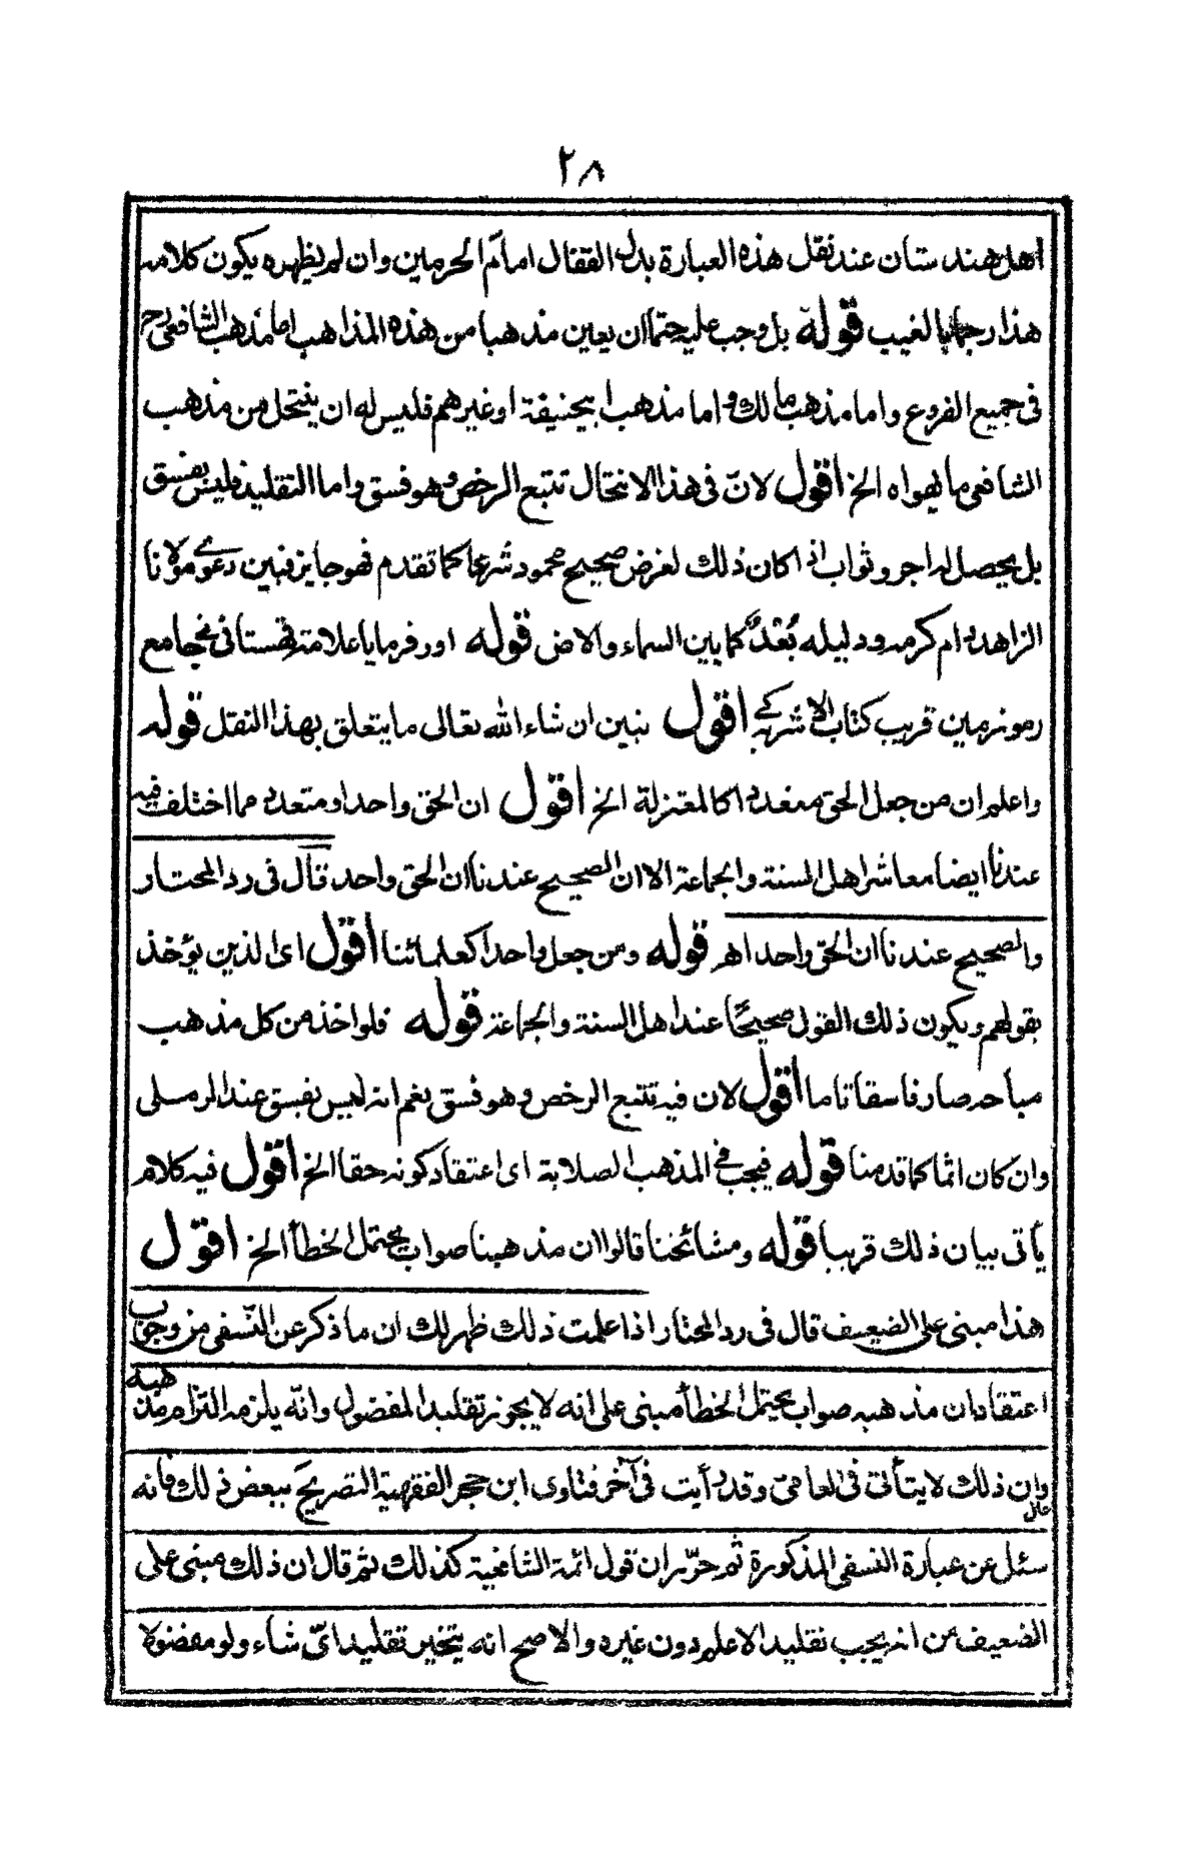 ٢٨
اهل هندستان عند نقل هذه العبارة بدل القفال امام الحرمين وان لم يظهره يكون كلامه
هذا رجما بالغيب قوله بل وجب عليه حتما ان يعين مذهبا من هذه المذاهب اما مذهب الشافعى رح
فى جميع الفروع واما مذهب مالك و اما مذهب ابيحنيفة او غيرهم فليس له ان ينتحل من مذهب
الشافعى ما يهواه الخ اقول لانّ فى هذا الانتحال تتبع الرخص وهو فسق واما التقليد فليس بفسق
بل يحصل له اجر وثواب اذا كان ذلك لغرض صحيح محمود شرعا كما تقدم فهو جايز فبين دعوى مولانا
الزاهد دام كرمه و دليله بُعْدٌ كما بين السماء والارض قوله اور فرمايا علامة قهستانى نے جامع
رموز مين قريب كتاب الاشربه كے اقول نبين ان شاء الله تعالى ما يتعلق بهذا النقل قوله
واعلم ان من جعل الحق متعددا كالمعتزلة الخ اقول ان الحق واحد او متعدد مما اختلف فيه
عندنا ايضا معاشر اهل السنة والجماعة الا ان الصحيح عندنا ان الحق واحد قال فى رد المحتار
والصحيح عندنا ان الحق واحد اهـ قوله ومن جعل واحدا كعلمائنا اقول اى الذين يؤخذ
بقولهم ويكون ذلك القول صحيحًا عند اهل السنة والجماعة قوله فلو اخذ من كل مذهب
مباحه صار فاسقا تاما اقول لان فيه تتبع الرخص وهو فسق نعم انه ليس بفسق عند الرملى
وان كان اثما كما قدمنا قوله فيجب فى المذهب الصلابة اى اعتقاد كونه حقا الخ اقول فيه كلام
يأتى بيان ذلك قريبا قوله ومشائخنا قالوا ان مذهبنا صواب يحتمل الخطأ الخ اقول
هذا مبنى على الضعيف قال فى رد المحتار اذا علمت ذلك ظهر لك ان ما ذكر عن النّسفى من وجوب
اعتقاد ان مذهبه صواب يحتمل الخطأ مبنى على انه لا يجوز تقليد المفضول وانّه يلزمه التزام مذهبه
وان ذلك لا يتأتى فى العامىّ وقد رأيت فى آخر فتاوى ابن حجر الفقهية التصريحَ ببعض ذلك فانه
سئل عن عبارة النسفى المذكورة ثم حرّر ان قول ائمة الشافعية كذلك ثم قال ان ذلك مبنى على
الضعيف من انه يجب تقليد الاعلم دون غيره والاصح انه يتخير تقليد اىّ شاء ولو مفضولا